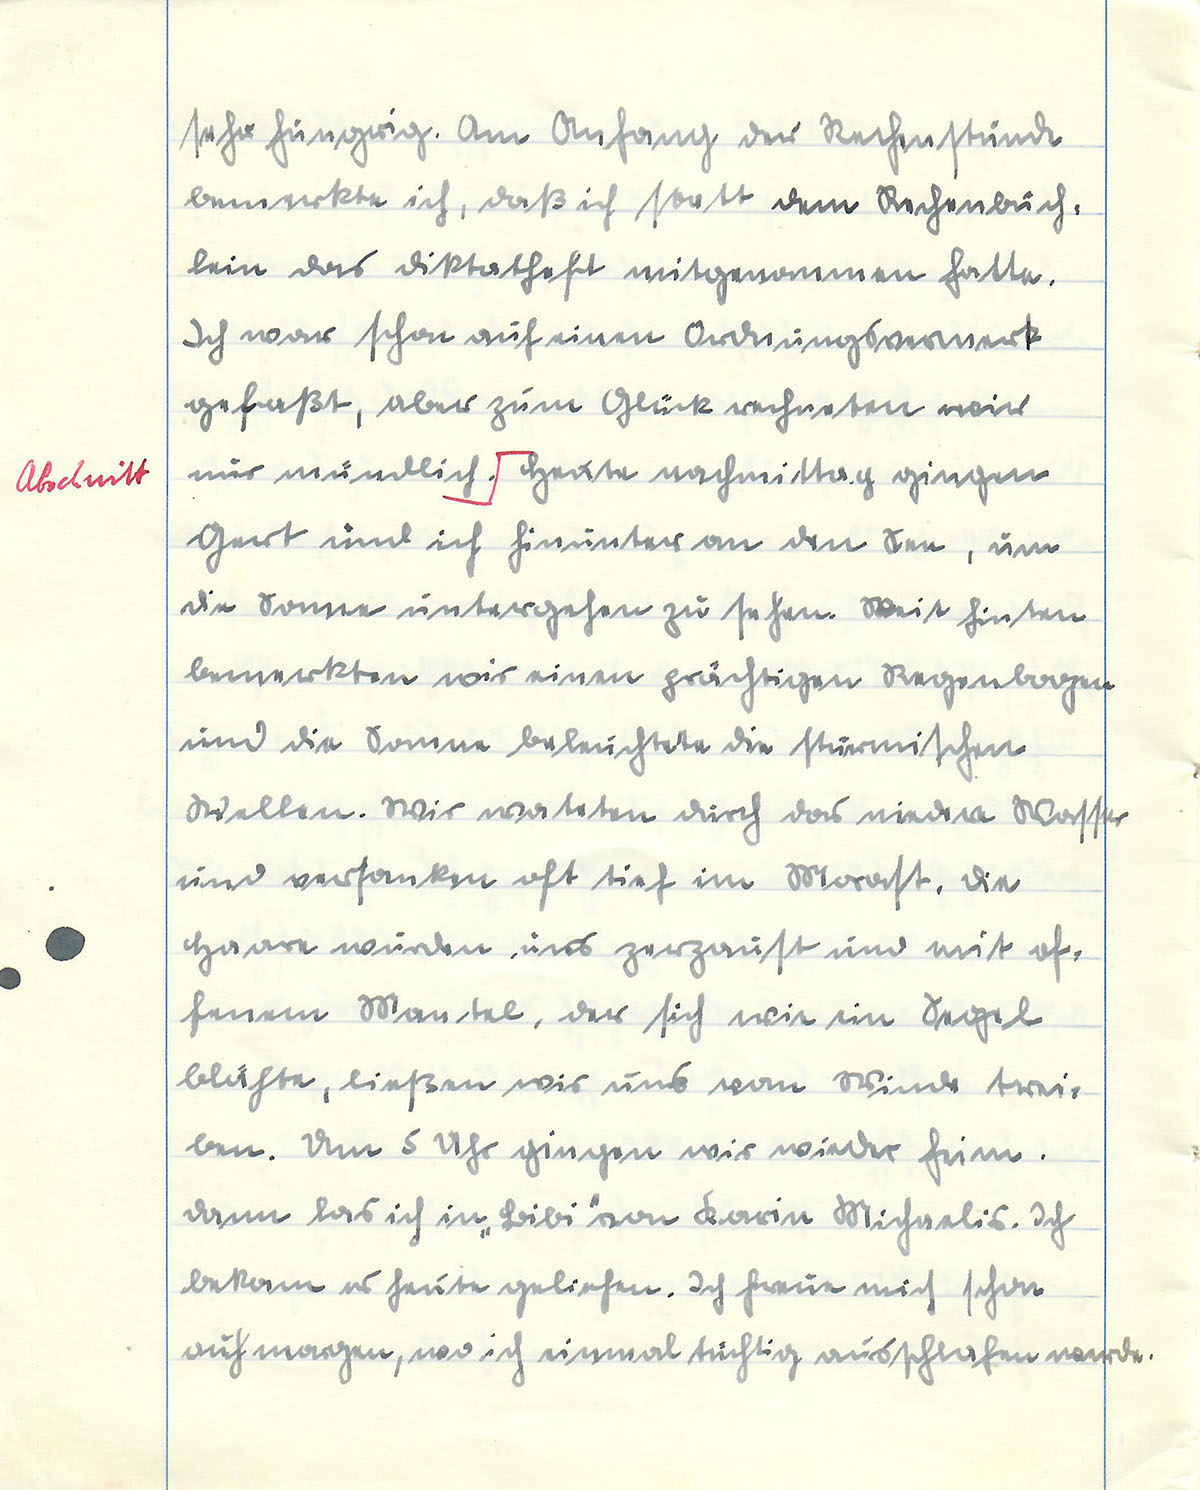 sehr hungrig. Am Anfang der Rechenstunde
bemerkte ich, daß ich statt dem Rechenbüch-
lein das Diktatheft mitgenommen hatte.
Ich war schon auf einen Ordnungsvermerk
gefaßt, aber zum Glück rechneten wir
Abschnitt nur mündlich. Heute nachmittag gingen
Gert und ich hinunter an den See, um
die Sonne untergehen zu sehen. Weit hinten
bemerkten wir einen prächtigen Regenbogen
und die Sonne beleuchtete die stürmischen
Wellen. Wir wateten durch das niedere Wasser
und versanken oft tief im Morast. Die
Haare wurden uns zerzaust und mit of-
fenem Mantel, der sich wie ein Segel
blähte, ließen wir uns vom Winde trei-
ben. Um 5 Uhr gingen wir wieder heim.
Dann las ich in „Bibi" von Karin Michaelis. Ich
bekam es heute geliehen. Ich freue mich schon
auf morgen, wo ich einmal tüchtig ausschlafen werde.